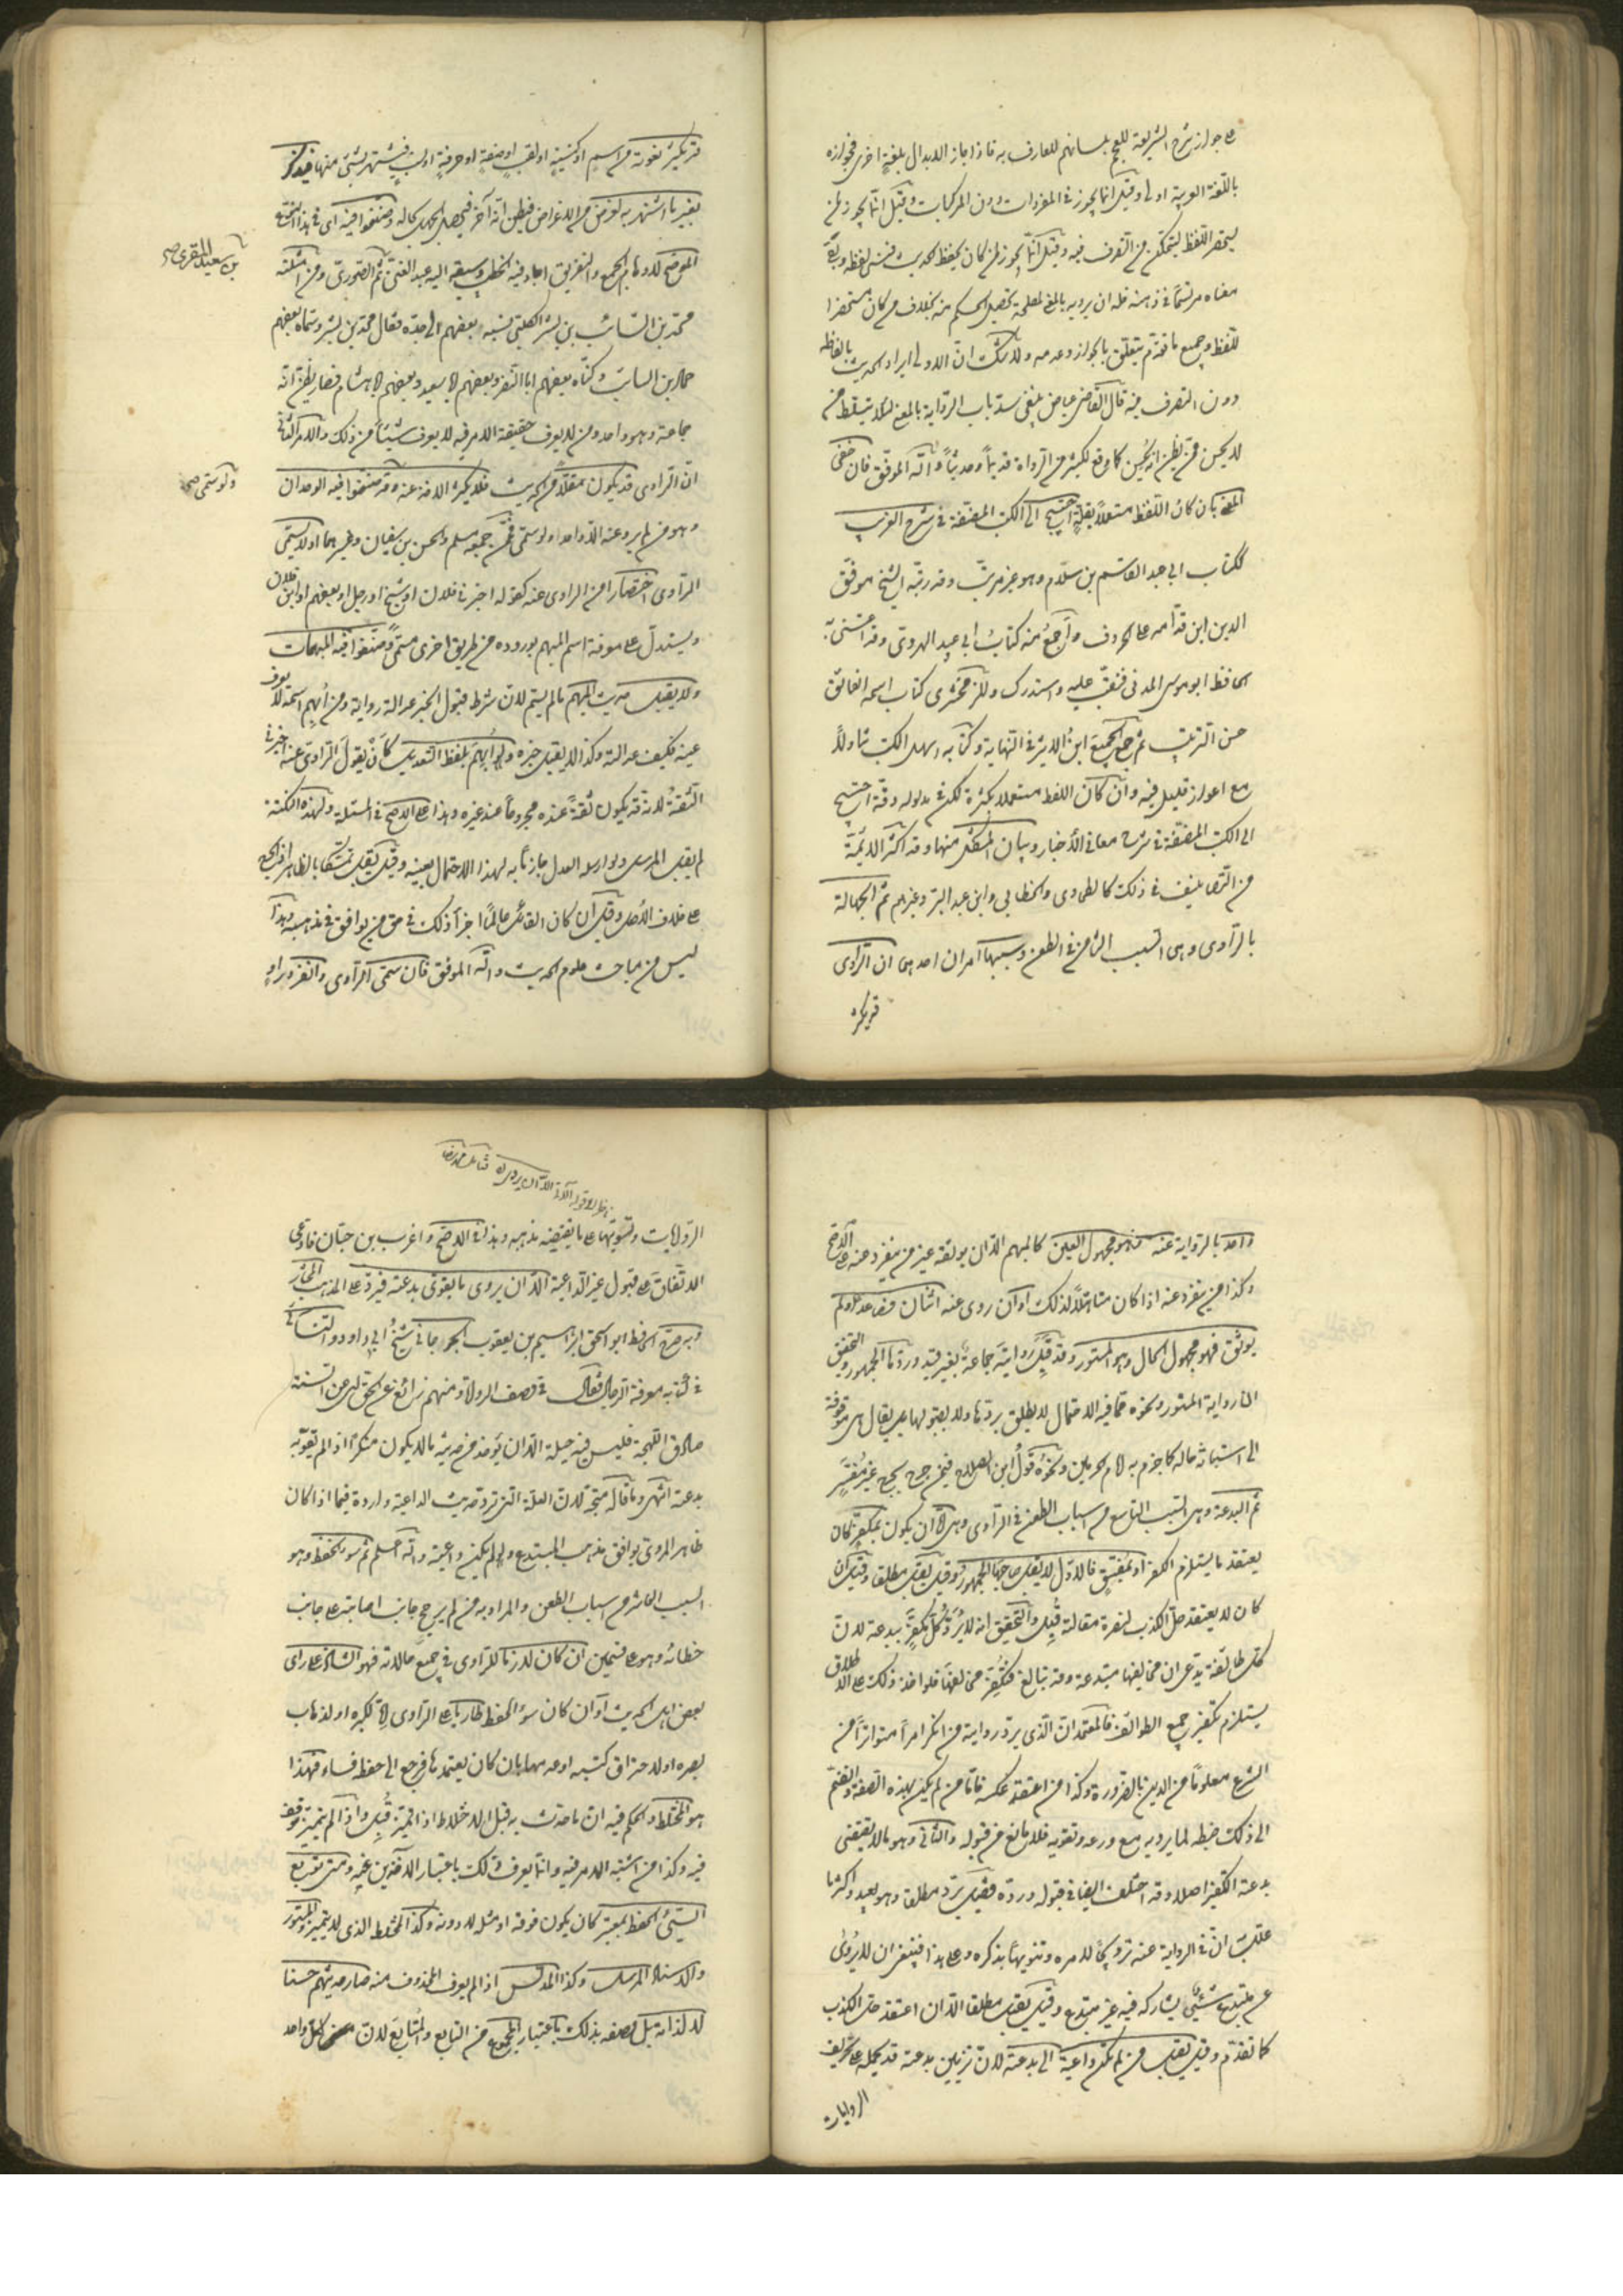 على جواز شرح الشريعة للعجم بلسانهم للعارف به فاذا جاز الابدال بلغة اخرى فجوازه
باللغة العربية اولى وقيل انما يجوز في المفردات دون المركبات وقيل انما يجوز لمن
يستحضر اللفظ ليتمكن من التصرف فيه وقيل انما يجوز لمن كان يحفظ الحديث فنسي لفظه وبقي
معناه مرتسما في ذهنه فله ان يرويه بالمعنى لمصلحة تحصيل الحكم منه بخلاف من كان مستحضرا
للفظه وجميع ما تقدم يتعلق بالجواز وعدمه ولا شك ان الاولى ايراد الحديث بالفاظه
دون التصرف فيه قال القاضي عياض ينبغي سد باب الرواية بالمعنى لئلا يتسلط من
لا يحسن ممن يظن انه يحسن كما وقع لكثير من الرواة قديما وحديثا والله الموفق فان خفي
المعنى بان كان اللفظ مستعملا بقلة احتيج الى الكتب المصنفة في شرح الغريب
ككتاب ابي عبد القاسم بن سلام وهو غير مرتب وقد رتبه الشيخ موفق
الدين ابن قدامه على الحروف واجمع منه كتاب ابي عبيد الهروي وقد اعتنى به
الحافظ ابو موسى المديني فنقب عليه واستدرك وللزمخشري كتاب اسمه الفائق
حسن الترتيب ثم جمع الجميع ابن الاثير في النهاية وكتابه اسهل الكتب تناولا
مع اعواز قليل فيه وان كان اللفظ مستعملا بكثرة لكن في مدلوله دقة احتيج
الى الكتب المصنفة في شرح معاني الاخبار وبيان المشكل منها وقد اكثر الائمة
من التصانيف في ذلك كالطحاوي والخطابي وابن عبد البر وغيرهم ثم الجهالة
بالراوي وهي السبب الثامن في الطعن وسببها امران احدهما ان الراوي
قد يكثر
قد يكثر نعوته من اسم او كنية او لقب او صفة او حرفة او نسب فيشتهر بشيء منها فيذكر
بغير ما اشتهر به لغرض من الاغراض فيظن انه آخر فيحصل الجهل بحاله وصنفوا فيه اى في هذا النوع
الموضح لاوهام الجمع والتفريق اجاد فيه الخطيب وسبقه اليه عبد الغني ثم الصوري ومن امثلته
بن سعيد المصري صح
محمد بن السائب بن بشر الكلبي نسبه بعضهم الى جده فقال محمد بن بشر وسماه بعضهم
حماد بن السائب وكناه بعضهم ابا النضر وبعضهم ابا سعيد وبعضهم ابا هشام فصار يظن انه
جماعة وهو واحد ومن لا يعرف حقيقة الامر فيه لا يعرف شيئا من ذلك والامر الثاني
ان الراوي قد يكون مقلا من الحديث فلا يكثر الاخذ عنه وقد صنفوا فيه الوحدان
ولو سمي صح
وهو من لم يرو عنه الا واحد ولو سمي فممن جمعه مسلم والحسن بن سفيان وغيرهما او لا يسمى
الراوي اختصارا من الراوي عنه كقوله اخبرني فلان او شيخ او رجل او بعضهم او ابن فلان
ويستدل على معرفة اسم المبهم بوروده من طريق اخرى مسمى وصنفوا فيه المبهمات
ولا يقبل حديث المبهم ما لم يسم لان شرط قبول الخبر عدالة رواية ومن ابهم اسمه لا يعرف
عينه فكيف عدالته وكذا لا يقبل خبره ولو ابهم بلفظ التعديل كان يقول الراوي عنه اخبرني
الثقة لانه قد يكون ثقة عنده مجروحا عند غيره وهذا على الاصح في المسئلة ولهذه النكتة
لم يقبل المرسل ولو ارسله العدل جازما به لهذا الاحتمال بعينه وقيل يقبل تمسكا بالظاهر اذ الجرح
على خلاف الاصل وقيل ان كان القائل عالما اجزأ ذلك في حق من يوافقه في مذهبه وهذا
ليس من مباحث علوم الحديث والله الموفق فان سمي الراوي وانفرد راو
واحد بالرواية عنه فهو مجهول العين كالمبهم الا ان يوثقه غير من ينفرد عنه على الاصح
وكذا من ينفرد عنه اذا كان متاهلا لذلك او ان روى عنه اثنان فصاعدا ولم
يوثق فهو مجهول الحال وهو المستور وقد قبل روايته جماعة بغير قيد وردها الجمهور والتحقيق
ان رواية المستور ونحوه مما فيه الاحتمال لا يطلق بردها ولا بقبولها بل يقال هي موقوفة
الى استبانة حاله كما جزم به امام الحرمين ونحوه قول ابن الصلاح فيمن جرح بجرح غير مفسر
ثم البدعة وهي السبب التاسع من اسباب الطعن في الراوي وهي اما ان يكون بمكفر كان
يعتقد ما يستلزم الكفر او بمفسق فالاول لا يقبل صاحبها الجمهور وقيل يقبل مطلقا وقيل ان
كان لا يعتقد حل الكذب لنصرة مقالته قبل والتحقيق انه لا يرد كل مكفر ببدعة لان
كل طائفة تدعي ان مخالفيها مبتدعة وقد تبالغ فتكفر مخالفها فلو اخذ ذلك على الاطلاق
يستلزم تكفير جميع الطوائف فالمعتمد ان الذي يرد رواية من انكر امرا متواترا من
الشرع معلوما من الدين بالضرورة وكذا من اعتقد عكسه فاما من لم يكن بهذه الصفة وانضم
الى ذلك ضبطه لما يرويه مع ورعه وتقويه فلا مانع من قبوله والثاني وهو ما لا يقتضي
بدعته التكفير اصلا وقد اختلف ايضا في قبوله ورده فقيل يرد مطلقا وهو بعيد واكثر ما
علل به ان في الرواية عنه ترويجا لامره وتنويها بذكره وعلى هذا فينبغي ان لا يروى
عن مبتدع شيئ يشاركه فيه غير مبتدع وقيل يقبل مطلقا الا ان اعتقد حل الكذب
كما تقدم وقيل يقبل من لم يكن داعية الى بدعته لان تزيين بدعته قد يحمله على تحريف
الروايات
الروايات وتسويتها على ما يقتضيه مذهبه وهذا في الاصح واغرب بن حبان فادعى
الاتفاق على قبول غير الداعية الا ان يروى ما يقوى بدعته فيرد على المذهب المختار
وبه صرح الحافظ ابو اسحق ابراهيم بن يعقوب الجوزجاني شيخ ابي داود والنسائي
في كتابه معرفة الرجال فقال في وصف الرواة ومنهم زائغ عن الحق اى عن السنة
صادق اللهجة فليس فيه حيلة الا ان يؤخذ من حديثه ما لا يكون منكرا اذا لم يقو به
بدعته انتهى وما قاله متجه لان العلة التي ترد حديث الداعية واردة فيما اذا كان
ظاهر المروى يوافق مذهب المبتدع ولو لم يكن داعية والله اعلم ثم سوء الحفظ وهو
السبب العاشر من اسباب الطعن والمراد به من لم يرجح جانب اصابته على جانب
خطائه وهو على قسمين ان كان لازما للراوي في جميع حالاته فهو الشاذ على راى
بعض اهل الحديث او ان كان سوء الحفظ طاريا على الراوي اما لكبره او لذهاب
بصره او لاحتراق كتبه او عدمها بان كان يعتمدها فرجع الى حفظه فساء فهذا
هو المختلط والحكم فيه ان ما حدث به قبل الاختلاط اذا تميز قبل واذا لم يتميز توقف
فيه وكذا من اشتبه الامر فيه وانما يعرف ذلك باعتبار الآخذين عنه ومتى توبع
السيئ الحفظ بمعتبر كان يكون فوقه او مثله لا دونه وكذا المختلط الذي لا يتميز والمستور
والاسناد المرسل وكذا المدلس اذا لم يعرف المحذوف منه صار حديثهم حسنا
لا لذاته بل وصفه بذلك باعتبار المجموع من التابع والمتابع لان كل واحد